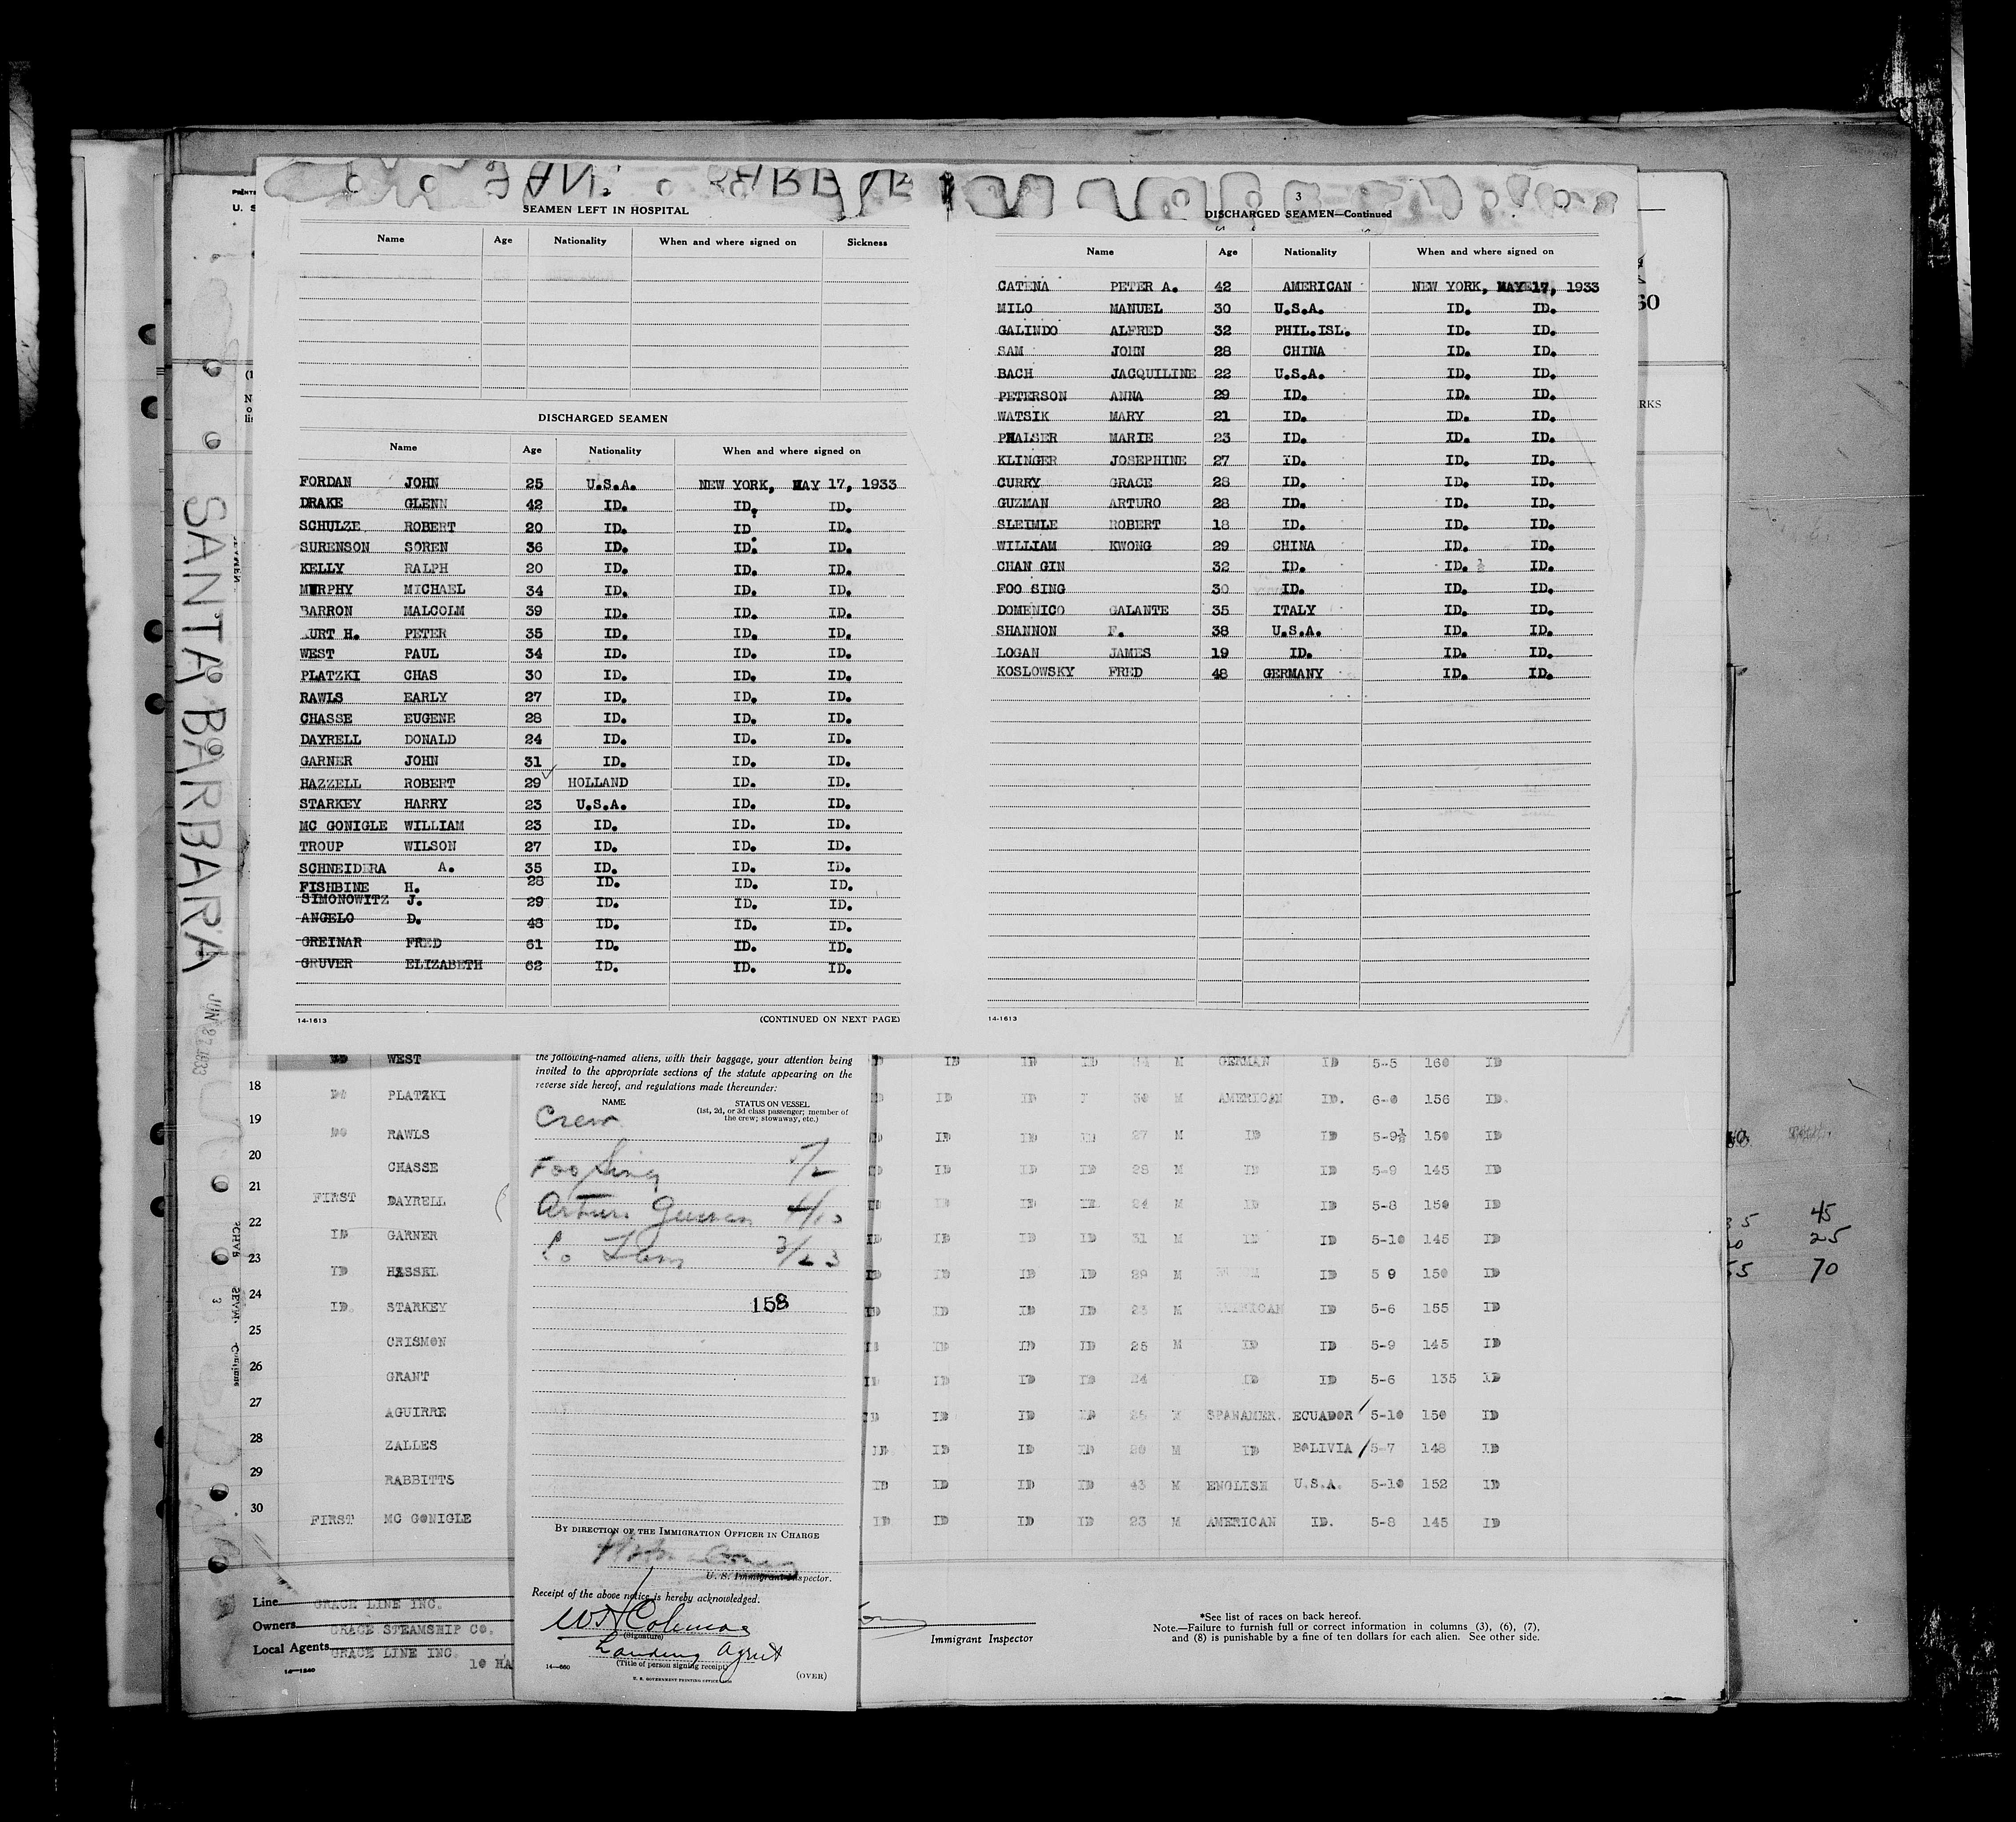 SEAMEN LEFT IN HOSPITAL
Name Age Nationality When and where signed on Sickness
DISCHARGED SEAMEN
Name Age Nationality When and where signed on
FORDAN JOHN 25 U.S.A. NEW YORK, MAY 17, 1933
DRAKE GLENN 42 ID. ID. ID.
SCHULZE ROBERT 20 ID. ID ID.
SURENSON SOREN 36 ID. ID. ID.
KELLY RALPH 20 ID. ID. ID.
MURPHY MICHAEL 34 ID. ID. ID.
BARRON MALCOLM 39 ID. ID. ID.
KURT H. PETER 35 ID. ID. ID.
WEST PAUL 34 ID. ID. ID.
PLATZKI CHAS 30 ID. ID. ID.
RAWLS EARLY 27 ID. ID. ID.
CHASSE EUGENE 28 ID. ID. ID.
DAYRELL DONALD 24 ID. ID. ID.
GARNER JOHN 31 ID. ID. ID.
HAZZELL ROBERT 29 HOLLAND ID. ID.
STARKEY HARRY 23 U.S.A. ID. ID.
MC GONIGLE WILLIAM 23 ID. ID. ID.
TROUP WILSON 27 ID. ID. ID.
SCHNEIDERA A. 35 ID. ID. ID.
FISHBINE H. 28 ID. ID. ID.
SIMONOWITZ J. 29 ID. ID. ID.
ANGELO D. 48 ID. ID. ID.
GREINAR FRED 61 ID. ID. ID.
GRUVER ELIZABETH 62 ID. ID. ID.
14-1613 (CONTINUED ON NEXT PAGE)
3
DISCHARGED SEAMEN—Continued
Name Age Nationality When and where signed on
CATENA PETER A. 42 AMERICAN NEW YORK, MAY 17, 1933
MILO MANUEL 30 U.S.A. ID. ID.
GALINDO ALFRED 32 PHIL.ISL. ID. ID.
SAM JOHN 28 CHINA ID. ID.
BACH JACQUILINE 22 U.S.A. ID. ID.
PETERSON ANNA 29 ID. ID. ID.
WATSIK MARY 21 ID. ID. ID.
PHALSER MARIE 23 ID. ID. ID.
KLINGER JOSEPHINE 27 ID. ID. ID.
CURRY GRACE 28 ID. ID. ID.
GUZMAN ARTURO 28 ID. ID. ID.
SLEIMLE ROBERT 18 ID. ID. ID.
WILLIAM KWONG 29 CHINA ID. ID.
CHAN GIN 32 ID. ID. ½ ID.
FOO SING 30 ID. ID. ID.
DOMENICO GALANTE 35 ITALY ID. ID.
SHANNON F. 38 U.S.A. ID. ID.
LOGAN JAMES 19 ID. ID. ID.
KOSLOWSKY FRED 48 GERMANY ID. ID.
14-1613
SANTA BARBARA
JUN 27 1933
the following-named aliens, with their baggage, your attention being
invited to the appropriate sections of the statute appearing on the
reverse side hereof, and regulations made thereunder:
NAME STATUS ON VESSEL
(1st, 2d, or 3d class passenger; member of
the crew; stowaway, etc.)
Crew
Foo Sing 5/2
Arturo Guzman 4/10
Lo Lam 3/23
158
BY DIRECTION OF THE IMMIGRATION OFFICER IN CHARGE
U. S. Immigrant Inspector.
Receipt of the above notice is hereby acknowledged.
W H Coleman
(Signature)
Landing Agent
(Title of person signing receipt)
14—660 (OVER)
WEST ID ID ID 34 M GERMAN ID 5-5 160 ID
18 DO PLATZKI ID ID 30 M AMERICAN ID. 6-0 156 ID.
19 DO RAWLS ID ID ID 27 M ID ID 5-9½ 150 ID
20 CHASSE ID ID ID ID 28 M ID ID 5-9 145 ID
21 FIRST DAYRELL ID ID ID ID 24 M ID ID 5-8 150 ID
22 ID GARNER ID ID ID ID 31 M ID ID 5-10 145 ID
23 ID HASSEL ID ID ID ID 29 M ID 5 9 150 ID
24 ID. STARKEY ID ID ID ID 23 M AMERICAN ID 5-6 155 ID
25 CRISMON ID ID ID ID 25 M ID ID 5-9 145 ID
26 GRANT ID ID ID ID 24 ID ID 5-6 135 ID
27 AGUIRRE ID ID ID ID 25 M SPANAMER. ECUADOR 5-10 150 ID
28 ZALLES ID ID ID ID 20 M ID BOLIVIA 5-7 148 ID
29 RABBITTS ID ID ID ID 43 M ENGLISH U.S.A. 5-10 152 ID
30 FIRST MC GONIGLE ID ID ID ID 23 M AMERICAN ID. 5-8 145 ID
Line GRACE LINE INC.
Owners GRACE STEAMSHIP CO.
Local Agents GRACE LINE INC.
14—1240 10 HA
Immigrant Inspector
*See list of races on back hereof.
Note.—Failure to furnish full or correct information in columns (3), (6), (7),
and (8) is punishable by a fine of ten dollars for each alien. See other side.
45
25
70